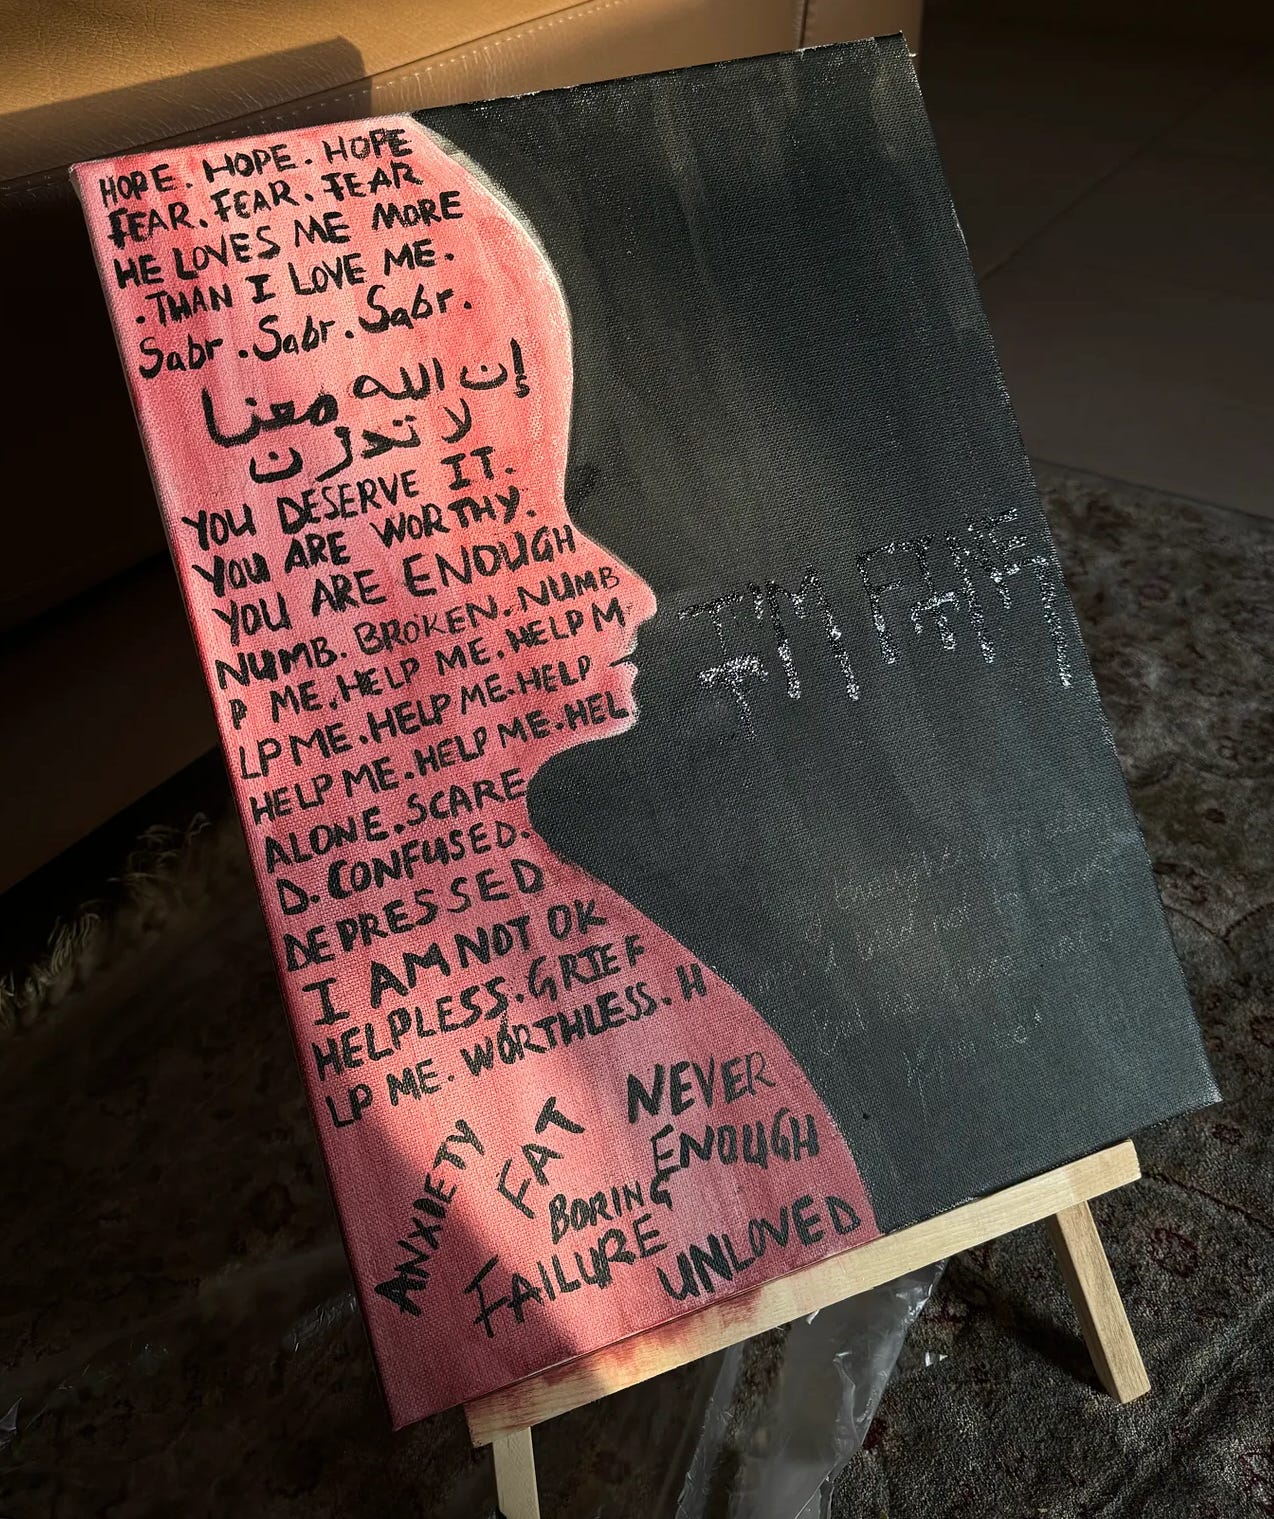 HOPE. HOPE. HOPE
FEAR. FEAR. FEAR
HE LOVES ME MORE
.THAN I LOVE ME.
Sabr. Sabr. Sabr.
إن الله معنا
لا تحزن
YOU DESERVE IT.
YOU ARE WORTHY.
YOU ARE ENOUGH
NUMB. BROKEN. NUMB
P ME. HELP ME. HELP M
LP ME. HELP ME. HELP
HELP ME. HELP ME. HEL
ALONE. SCARE
D. CONFUSED.
DEPRESSED
I AM NOT OK
HELPLESS. GRIEF
LP ME. WORTHLESS. H
ANXIETY
FAT
NEVER
ENOUGH
BORING
FAILURE
UNLOVED
I'M FINE